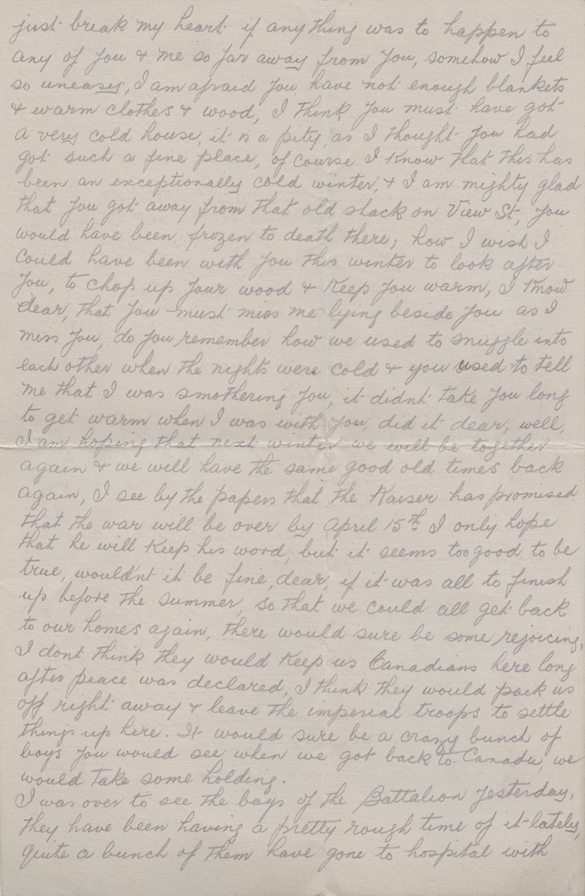 just break my heart if anything was to happen to
any of you & me so far away from you, somehow I feel
so uneasy, I am afraid you have not enough blankets
& warm clothes & wood, I think you must have got
a very cold house, it is a pity, as I thought you had
got such a fine place, of course I know that this has
been an exceptionally cold winter, & I am mighty glad
that you got away from that old shack on View St, you
would have been frozen to death there, how I wish I
could have been with you this winter to look after
you, to chop up your wood & keep you warm, I know
dear, that you must miss me lying beside you as I
miss you, do you remember how we used to snuggle into
each other when the nights were cold & you used to tell
me that I was smothering you, it didnt take you long
to get warm when I was with you, did it dear, well,
I am hoping that next winter we will be together
again & we will have the same good old times back
again, I see by the papers that the Kaiser has promised
that the war will be over by April 15th I only hope
that he will keep his word, but it seems too good to be
true, wouldnt it be fine, dear, if it was all to finish
up before the summer, so that we could all get back
to our homes again, there would sure be some rejoicing,
I dont think they would keep us Canadians here long
after peace was declared, I think they would pack us
off right away & leave the imperial troops to settle
things up here. It would sure be a crazy bunch of
boys you would see when we got back to Canada, we
would take some holding.
I was over to see the boys of the Battalion yesterday,
they have been having a pretty rough time of it lately,
quite a bunch of them have gone to hospital with